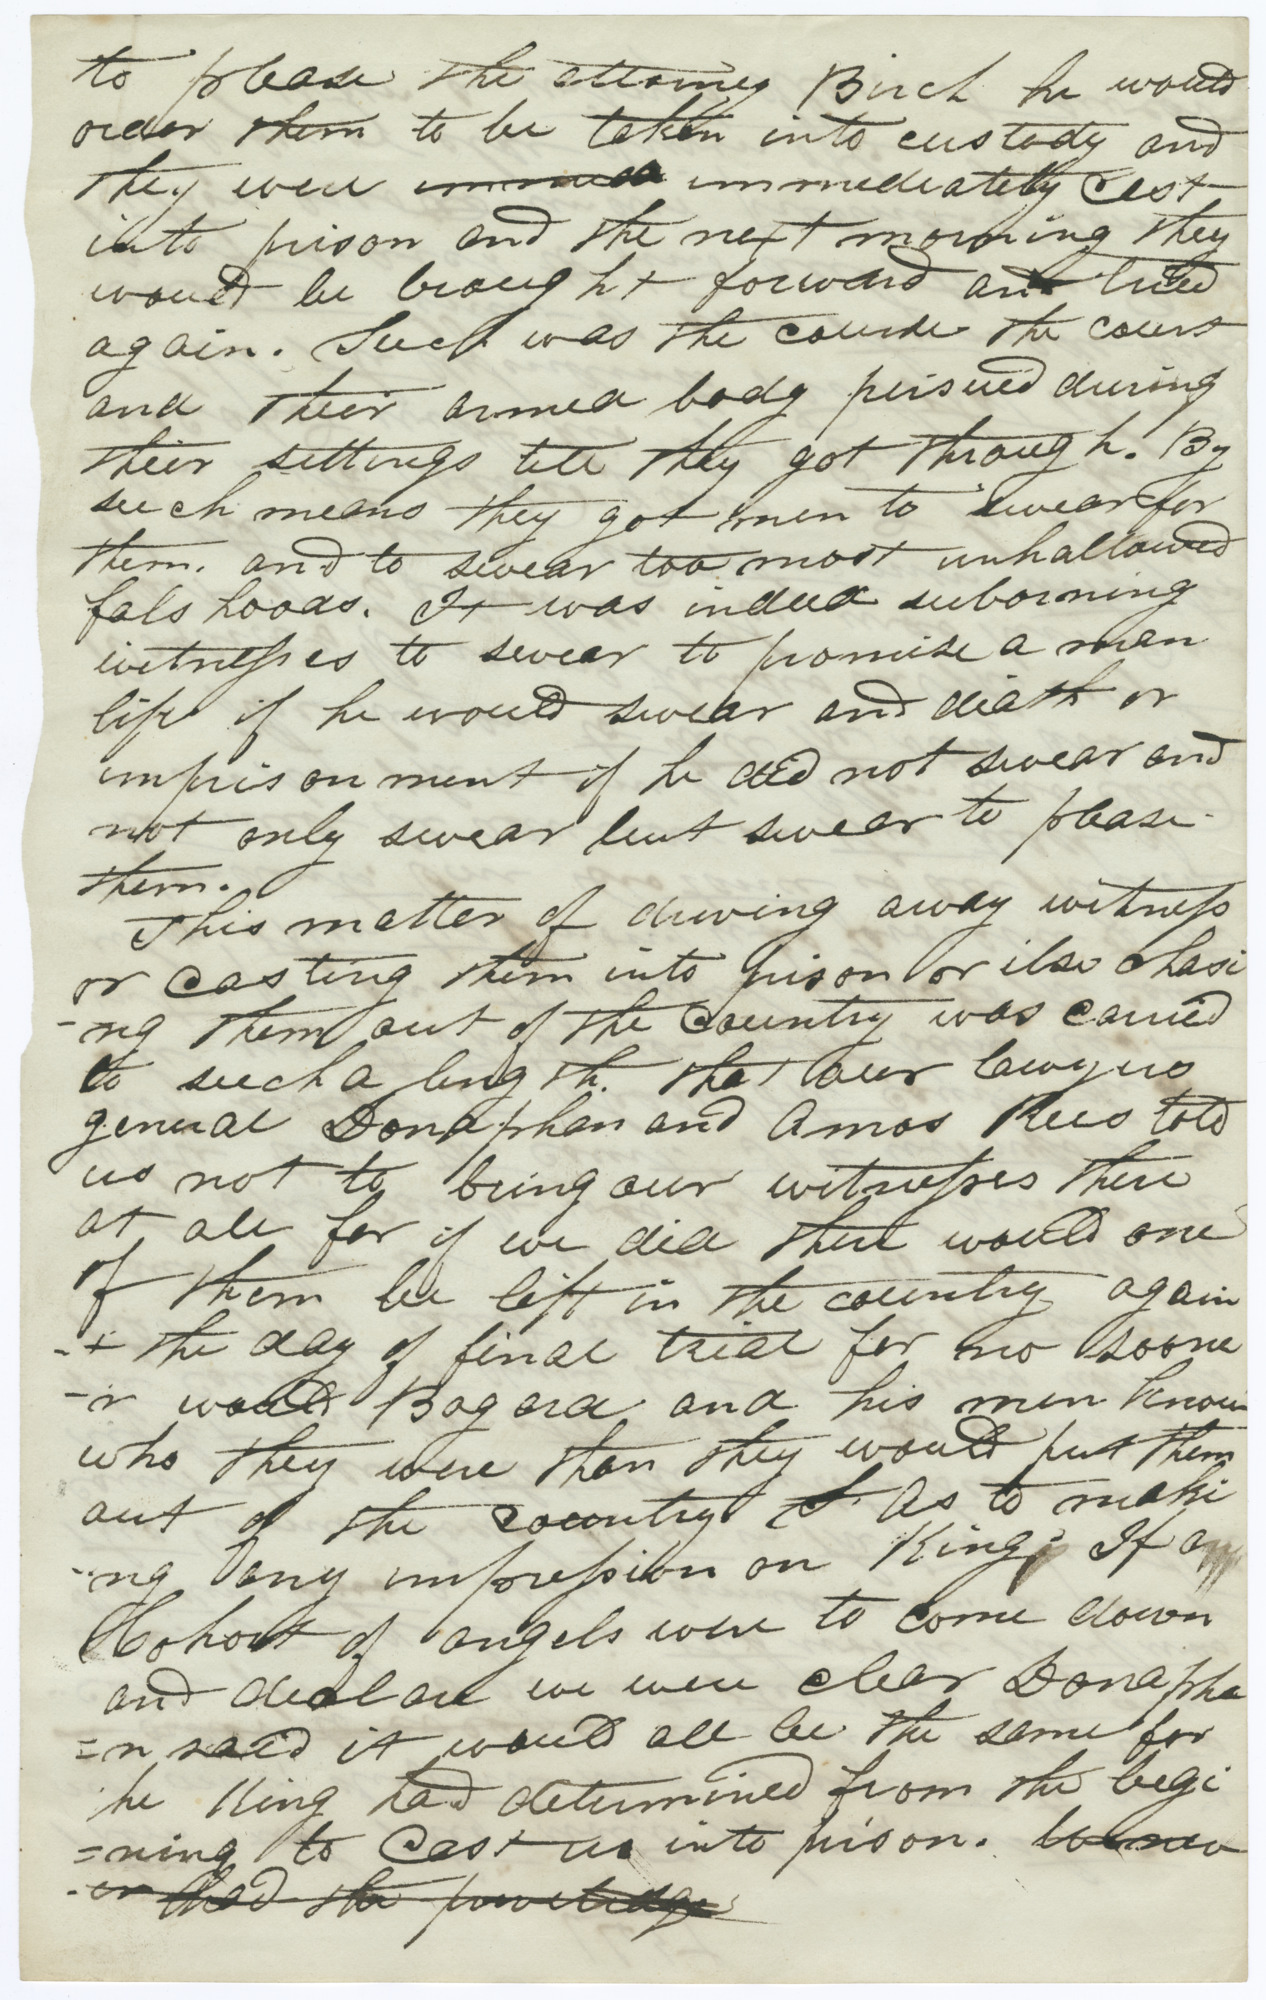 to please the attorney Birch he would
order them to be taken into custody and
they were immedia immediately cast
into prison and the next morning they
would be brought forward and tried
again. Such was the course the court
and their armed body persued during
their settings till they got through. By
such means they got men to swear for
them. and to swear too most unhallowed
fals hoods. It was indeed suborning
witnesses to swear to promise a man
life if he would swear and death or
imprisonment if he did not swear and
not only swear but swear to please
them.
This matter of driving away witness
or casting them into prison or else chasi
-ng them out of the country was carried
to such a length. that our lawyers
general Donaphan and Amos Rees told
us not to bring our witnesses there
at all for if we did there would one
of them be left in the country again
-t the day of final trial for no soone
-r would Bogard and his men know
who they were than they would put them
out of the country As to maki
-ng any impression on King; If a
Cohort of angels were to come down
and declare we were clear Donapha
=n said it would all be the same for
he King had determined from the begi
=ning to cast us into prison. we nev
-er had the previledge